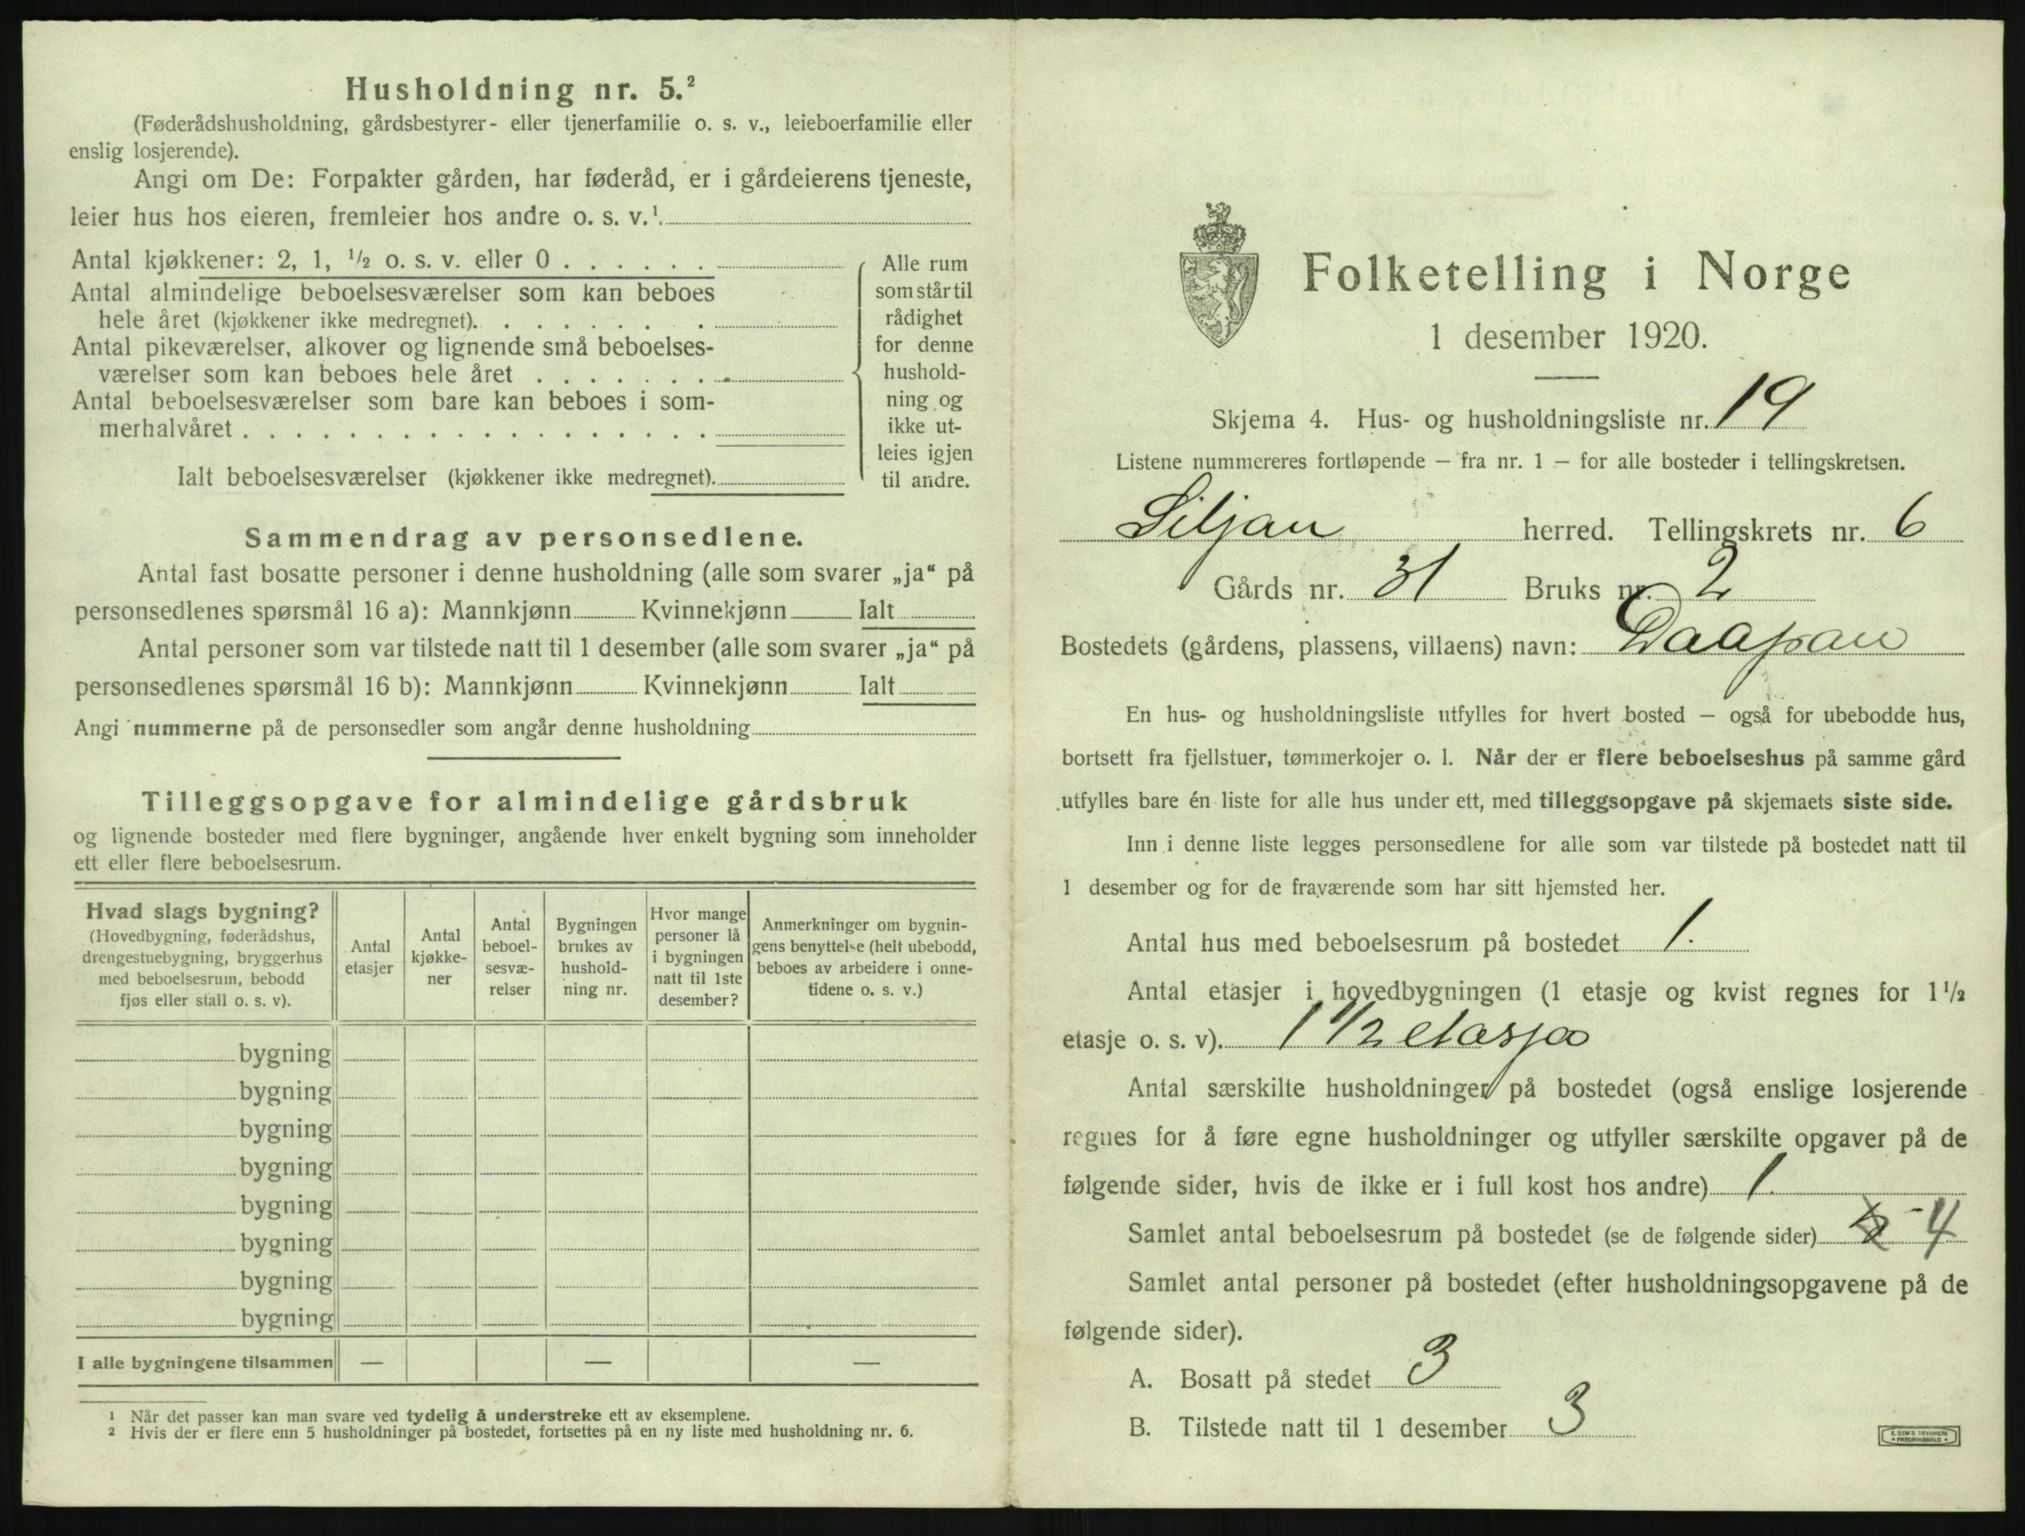 Husholdning nr. 5.²
(Føderådshusholdning, gårdsbestyrer- eller tjenerfamilie o. s. v., leieboerfamilie eller
enslig losjerende).
Angi om De: Forpakter gården, har føderåd, er i gårdeierens tjeneste,
leier hus hos eieren, fremleier hos andre o. s. v.¹
Antal kjøkkener: 2, 1, ½ o. s. v. eller 0 . . . . . .
Antal almindelige beboelsesværelser som kan beboes
hele året (kjøkkener ikke medregnet). . . . . . . . .
Antal pikeværelser, alkover og lignende små beboelses-
værelser som kan beboes hele året . . . . . . .
Antal beboelsesværelser som bare kan beboes i som-
merhalvåret . . . . . . . . . . . . . . . . . .
Ialt beboelsesværelser (kjøkkener ikke medregnet).
Alle rum
som står til
rådighet
for denne
hushold-
ning og
ikke ut-
leies igjen
til andre.
Sammendrag av personsedlene.
Antal fast bosatte personer i denne husholdning (alle som svarer „ja“ på
personsedlenes spørsmål 16 a): Mannkjønn Kvinnekjønn Ialt
Antal personer som var tilstede natt til 1 desember (alle som svarer „ja“ på
personsedlenes spørsmål 16 b): Mannkjønn Kvinnekjønn Ialt
Angi nummerne på de personsedler som angår denne husholdning
Tilleggsopgave for almindelige gårdsbruk
og lignende bosteder med flere bygninger, angående hver enkelt bygning som inneholder
ett eller flere beboelsesrum.
Hvad slags bygning?
(Hovedbygning, føderådshus,
drengestuebygning, bryggerhus
med beboelsesrum, bebodd
fjøs eller stall o. s. v).
Antal
etasjer
Antal
kjøkke-
ner
Antal
beboel-
sesvæ-
relser
Bygningen
brukes av
hushold-
ning nr.
Hvor mange
personer lå
i bygningen
natt til 1ste
desember?
Anmerkninger om bygnin-
gens benyttelse (helt ubebodd,
beboes av arbeidere i onne-
tidene o. s. v.)
bygning
bygning
bygning
bygning
bygning
bygning
bygning
bygning
I alle bygningene tilsammen — — —
¹ Når det passer kan man svare ved tydelig å understreke ett av eksemplene.
² Hvis der er flere enn 5 husholdninger på bostedet, fortsettes på en ny liste med husholdning nr. 6.
Folketelling i Norge
1 desember 1920.
Skjema 4. Hus- og husholdningsliste nr. 19
Listene nummereres fortløpende – fra nr. 1 – for alle bosteder i tellingskretsen.
Siljan herred. Tellingskrets nr. 6
Gårds nr. 31 Bruks nr. 2
Bostedets (gårdens, plassens, villaens) navn: Daapan
En hus- og husholdningsliste utfylles for hvert bosted – også for ubebodde hus,
bortsett fra fjellstuer, tømmerkojer o. l. Når der er flere beboelseshus på samme gård
utfylles bare én liste for alle hus under ett, med tilleggsopgave på skjemaets siste side.
Inn i denne liste legges personsedlene for alle som var tilstede på bostedet natt til
1 desember og for de fraværende som har sitt hjemsted her.
Antal hus med beboelsesrum på bostedet 1.
Antal etasjer i hovedbygningen (1 etasje og kvist regnes for 1½
etasje o. s. v). 1 ½ etasje
Antal særskilte husholdninger på bostedet (også enslige losjerende
regnes for å føre egne husholdninger og utfyller særskilte opgaver på de
følgende sider, hvis de ikke er i full kost hos andre) 1.
Samlet antal beboelsesrum på bostedet (se de følgende sider) - 4
Samlet antal personer på bostedet (efter husholdningsopgavene på de
følgende sider).
A. Bosatt på stedet 3
B. Tilstede natt til 1 desember 3
E. SEM'S TRYKKERI
• FREDRIKSHALD •